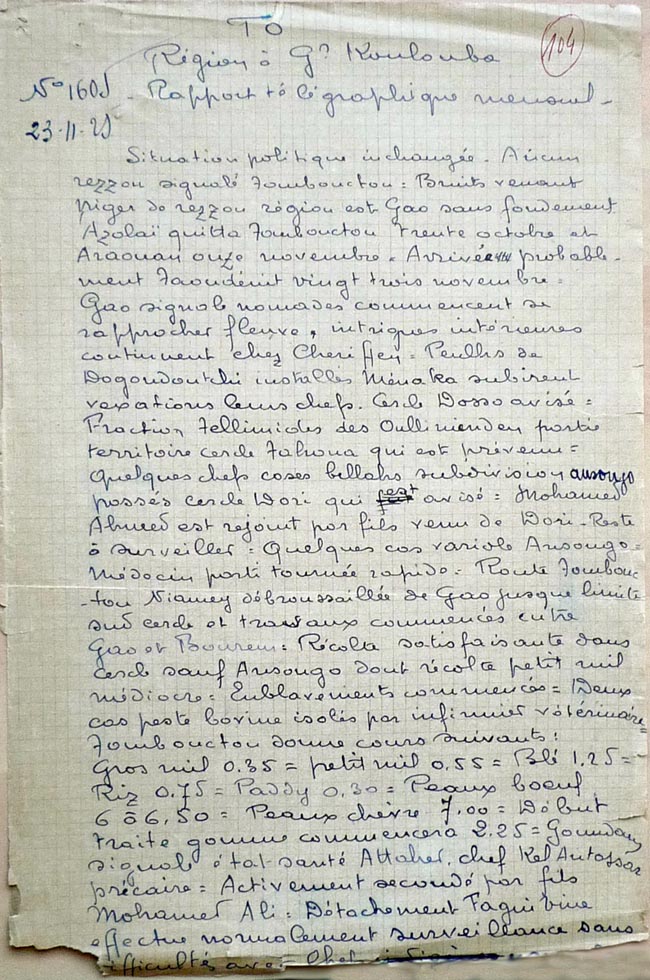 TO
104
Région à Gr Koulouba
N° 160S - Rapport télégraphique mensuel -
23-11-29
Situation politique inchangée - Aucun
rezzou signalé Tombouctou = Bruits venant
Niger de rezzou région est Gao sans fondement
Azalaï quitta Tombouctou trente octobre et
Araouan onze novembre - Arrivée probable-
ment Taoudénit vingt trois novembre =
Gao signale nomades commencent se
rapprocher fleuve, intrigues intérieures
continuent chez Cheriffen = Peulhs de
Dogondoutchi installés Ménaka subirent
vexations leurs chefs. Cercle Dosso avisé =
Fraction Tellimides des Oulliminden partie
territoire cercle Tahoua qui est prévenu =
Quelques chefs cases bellahs subdivision ansongo
passés cercle Dori qui est avisé = Mohamed
Ahmed est rejoint par fils venu de Dori - Reste
à surveiller = Quelques cas variole Ansongo =
Médecin parti tournée rapide = Route Tombouc
-tou Niamey débroussaillée de Gao jusque limite
sud cercle et travaux commencés entre
Gao et Bourem = Récolte satisfaisante dans
cercle sauf Ansongo dont récolte petit mil
médiocre = Emblavements commencés = Deux
cas peste bovine isolés par infirmier vétérinaire =
Tombouctou donne cours suivants :
Gros mil 0.35 = petit mil 0.55 = Blé 1.25 =
Riz 0.75 = Paddy 0.30 = Peaux boeuf
6 à 6,50 = Peaux chèvre 7.00 = Début
traite gomme commencera 2.25 = Goundam
signale état santé Attaher, chef Kel Antassar
précaire = Activement secondé par fils
Mohamed Ali = Détachement Faguibine
effectue normalement surveillance sans
difficultés avec Chef